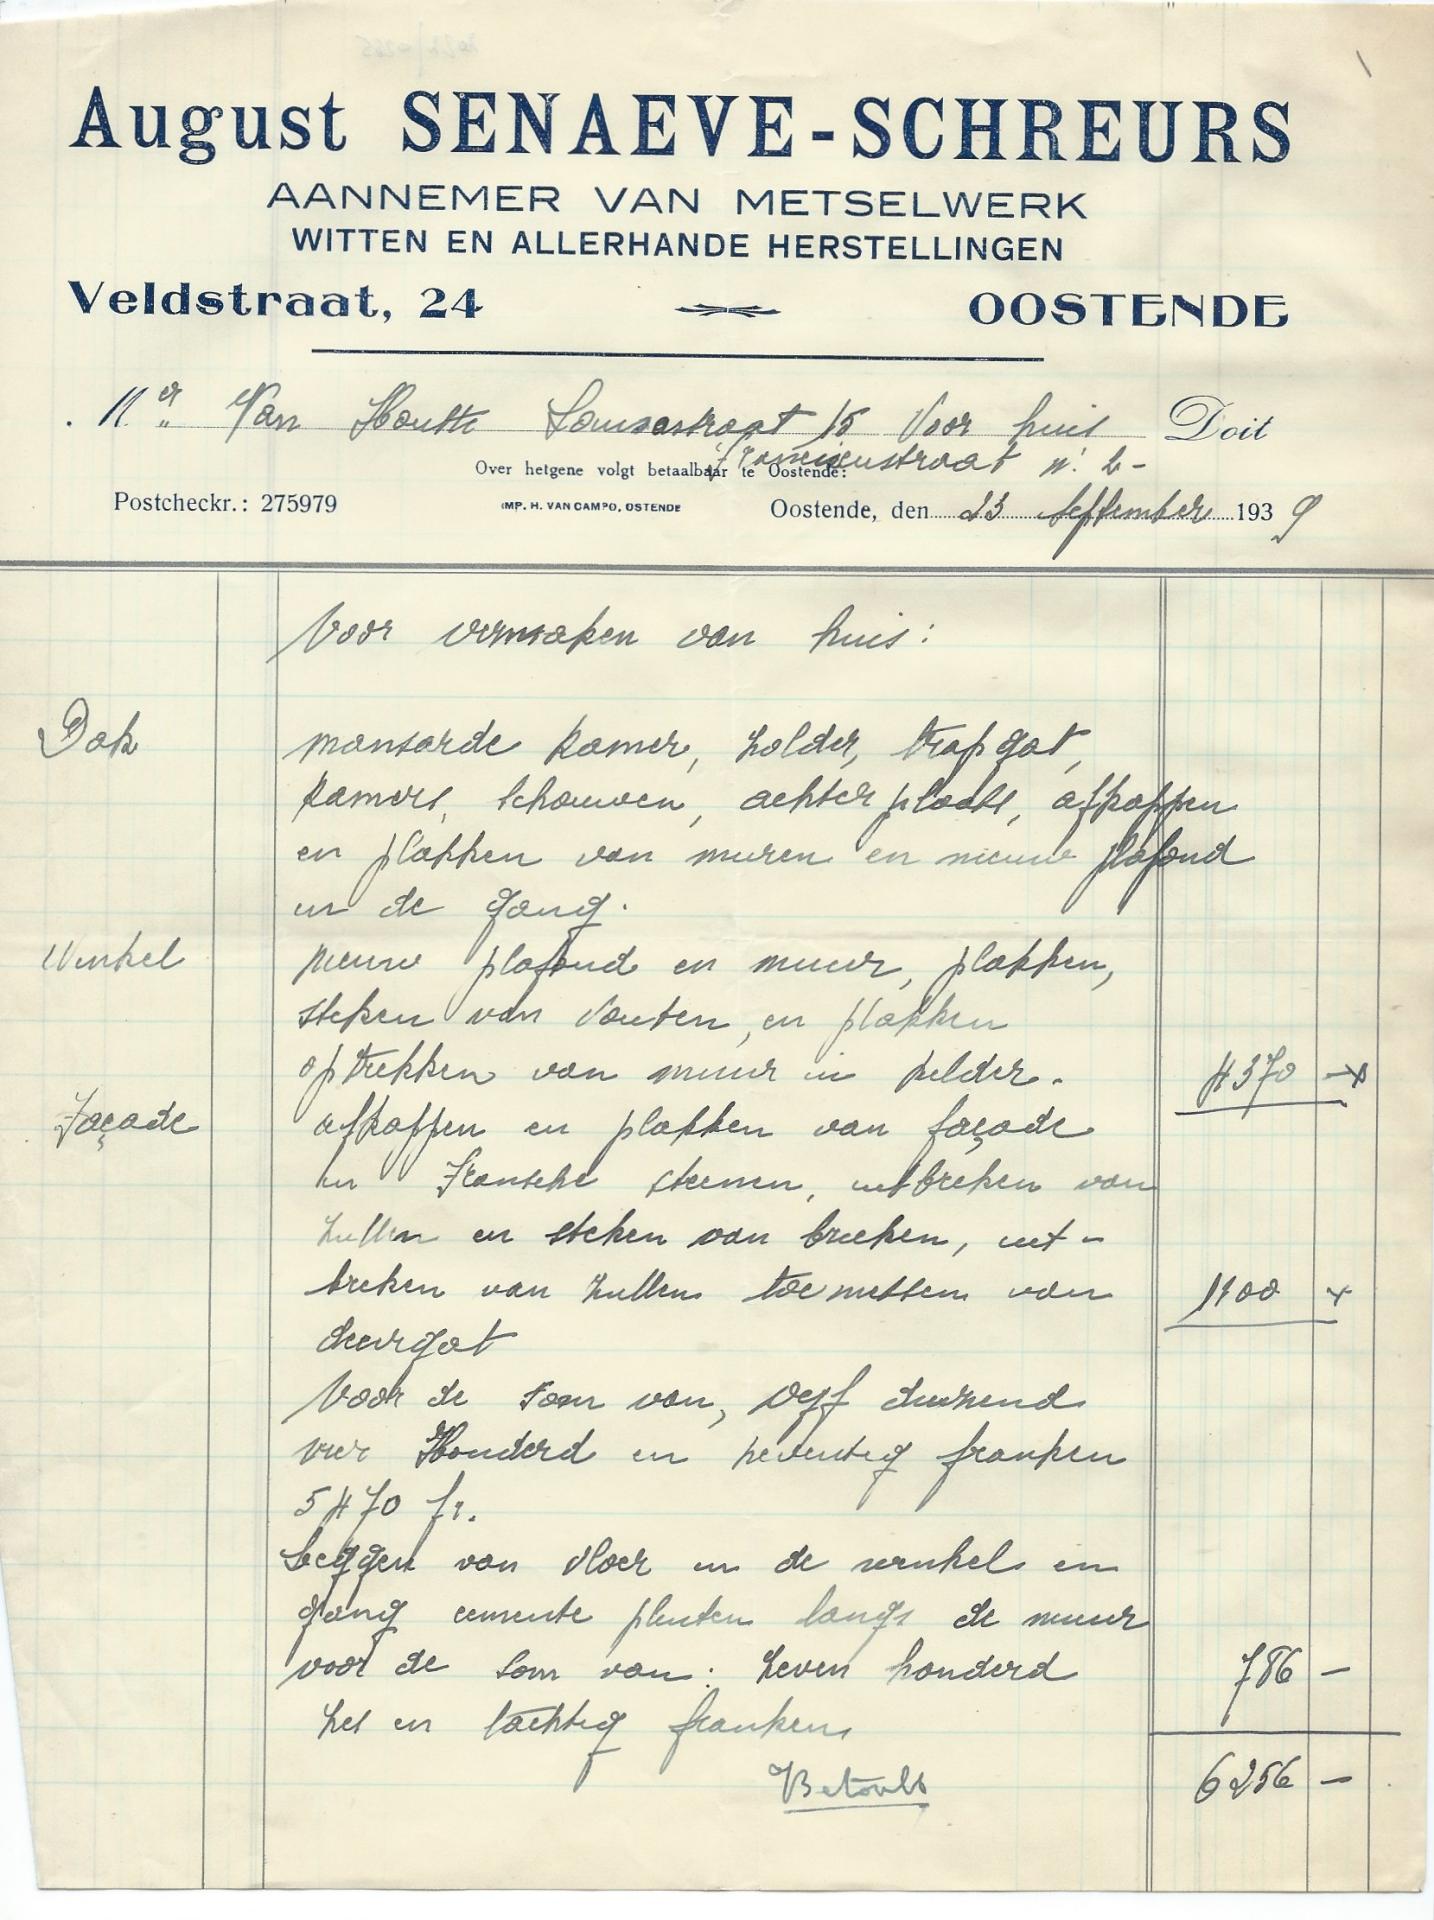 August SENAEVE-SCHREURS
AANNEMER VAN METSELWERK
WITTEN EN ALLERHANDE HERSTELLINGEN
Veldstraat, 24 OOSTENDE
Mr Van Houtte Louisastraat 15 Voor huis Doit
Franciscusstraat n: 2-
Over hetgene volgt betaalbaar te Oostende:
Postcheckr.: 275979 IMP. H. VAN CAMPO, OSTENDE Oostende, den 23 September 1939
Voor vermaken van huis:
Dak mansarde kamer, zolder, trapgat,
kamers, schouwen, achter plaats, afkappen
en plakken van muren en nieuw plafond
in de gang.
Winkel nieuw plafond en muur, plakken,
steken van vouten, en plakken
optrekken van muur in kelder. 4370 -
Façade afkappen en plakken van façade
in Fransche steenen, uitbreken van
zullen en steken van brieken, uit-
breken van zullen toemetsen van 1100
deurgat
Voor de som van, Vyf duizend
vier Honderd en zeventig franken
5470 fr.
Leggen van vloer in de winkel en
gang cemente plinten langs de muur
voor de som van: zeven honderd 786 -
zes en tachtig franken
Betaald 6256 -